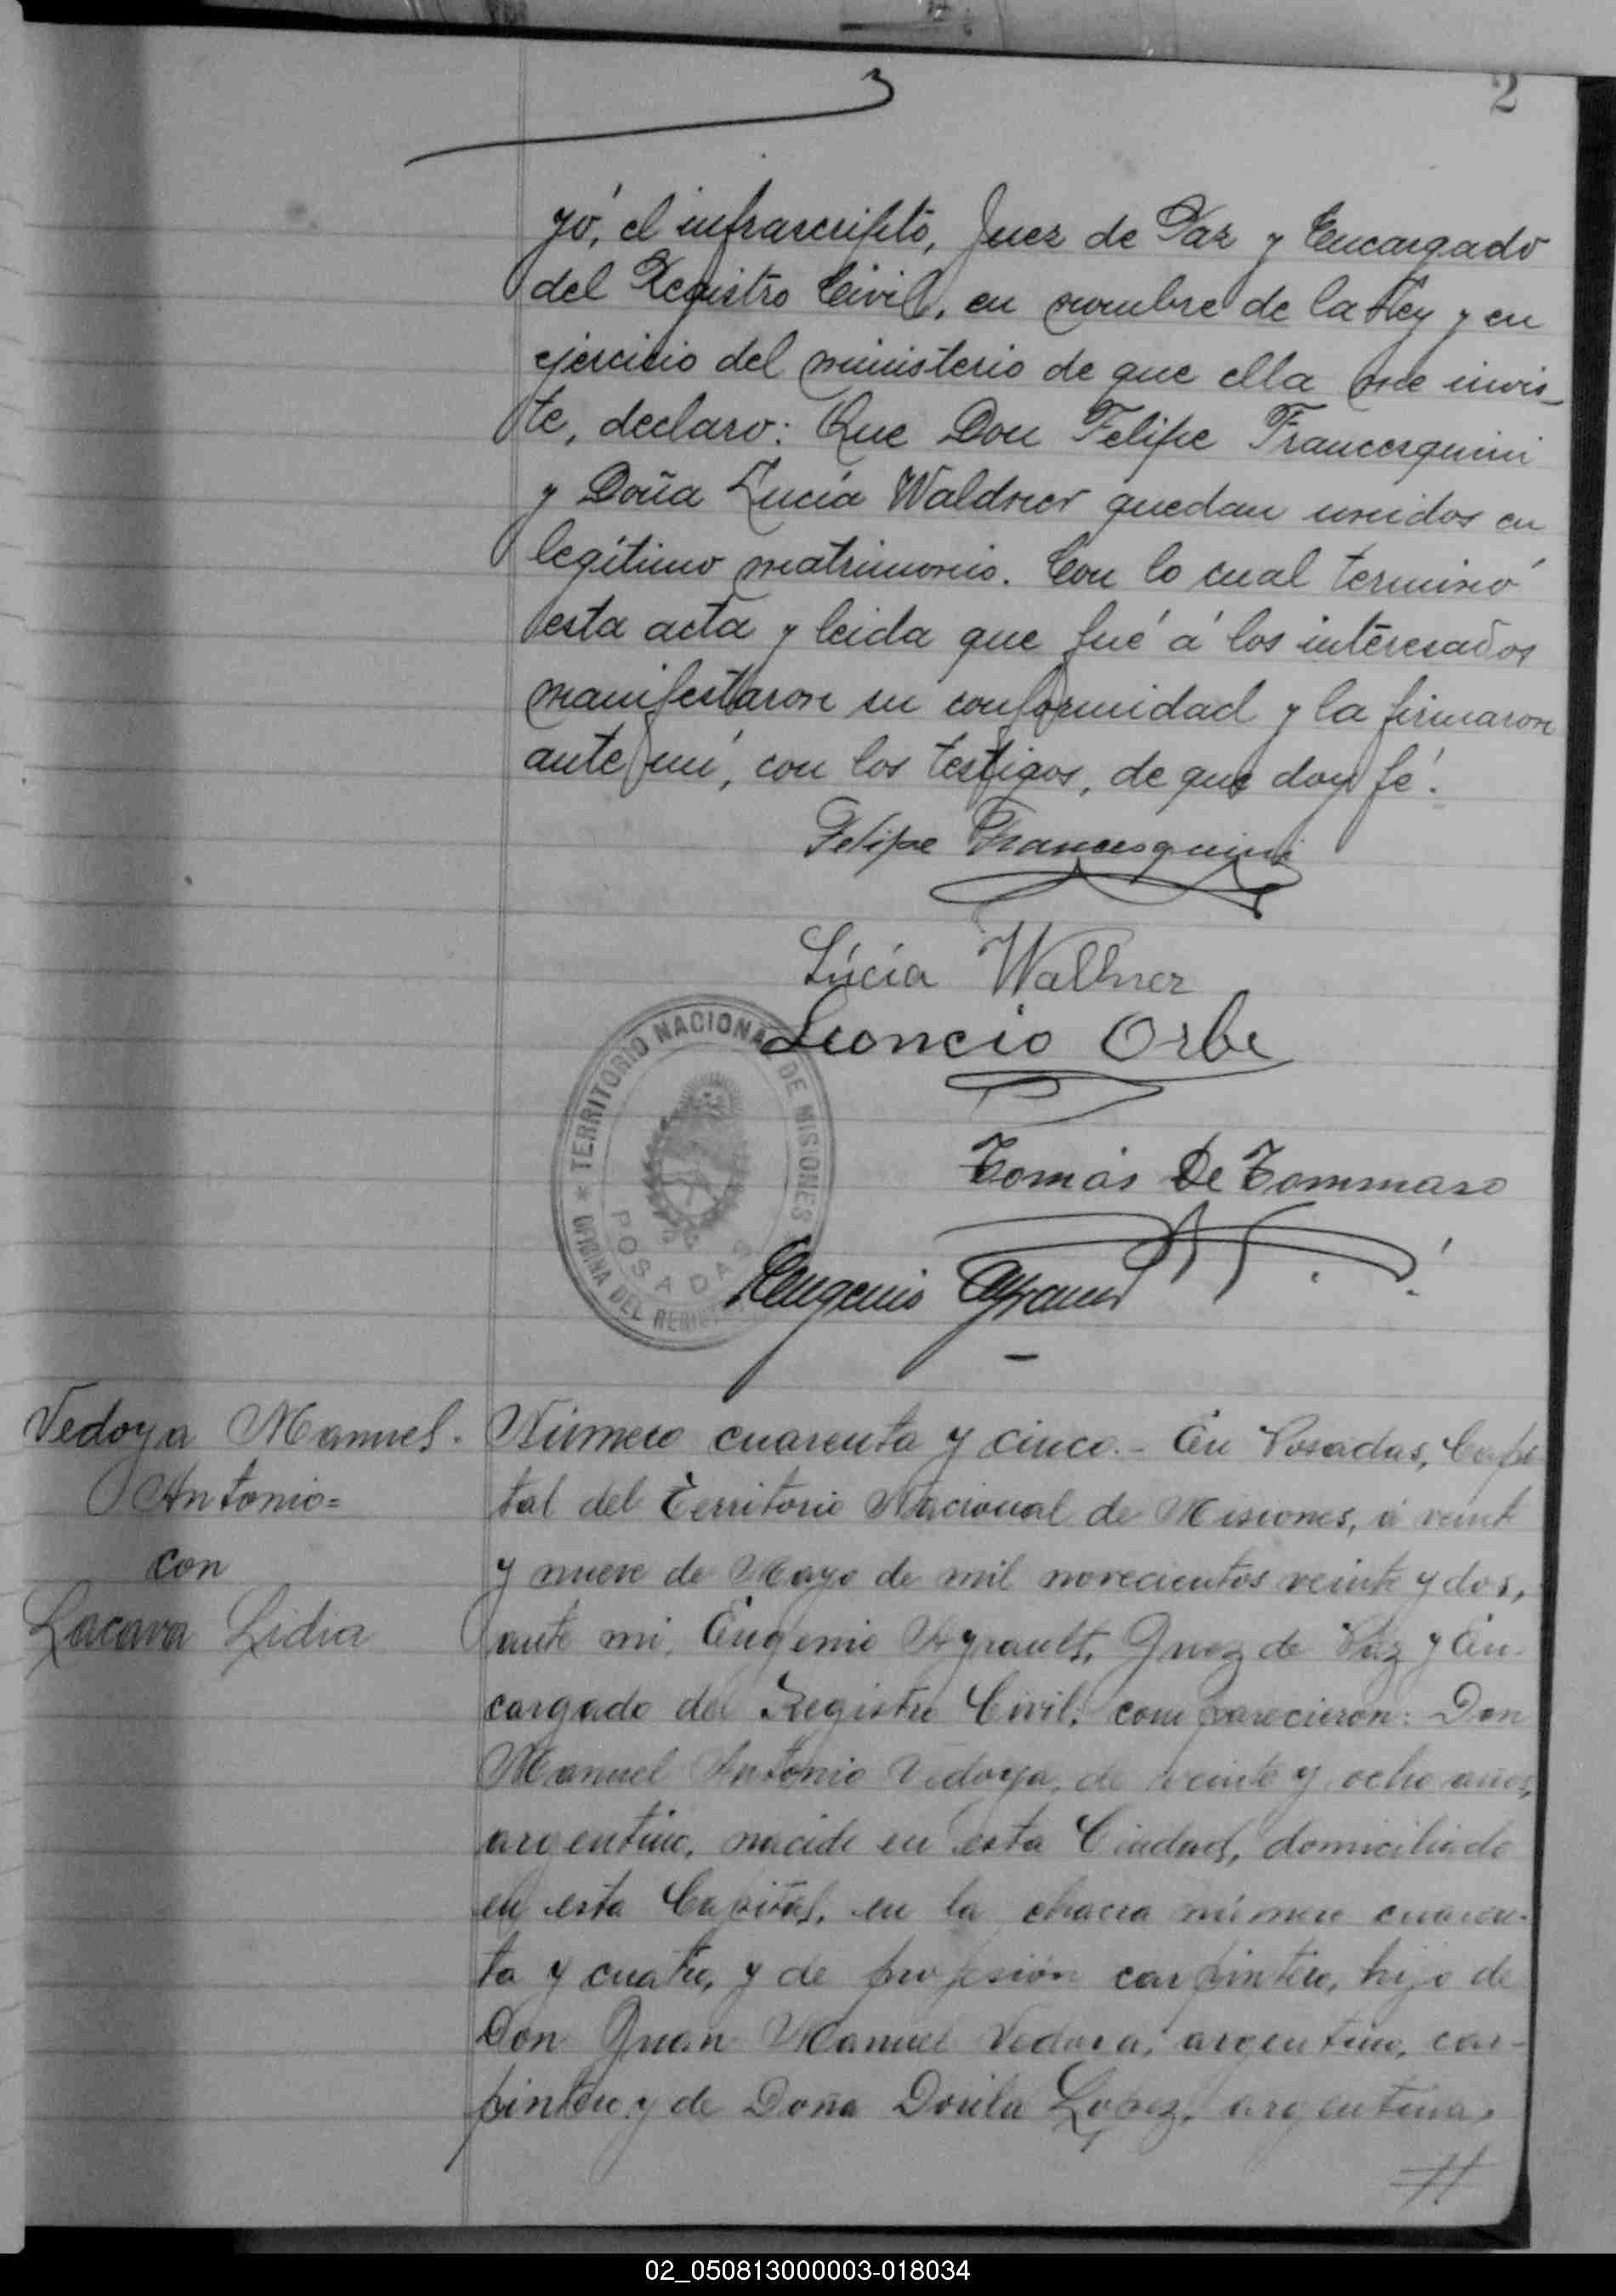 2
yó, el infrascripto, Juez de Paz y Encargado
del Registro Civil, en nombre de la Ley y en
ejercicio del ministerio de que ella me invis_
te, declaro: Que Don Felipe Francesquini
y Doña Lucía Waldner quedan unidos en
legítimo matrimonio. Con lo cual terminó
esta acta y leida que fué á los interesados
manifestaron su conformidad y la firmaron
ante mí, con los testigos, de que doy fé.
Felipe Francesquini
Lúcía Wallner
Leoncio Orbe
TERRITORIO NACIONAL DE MISIONES
OFICINA DEL
POSADAS
Tomás De Tommaso
Eugenio Ayrault
Vedoya Manuel.
Antonio=
con
Lacava Lidia
Número cuarenta y cinco.- En Posadas, Capi
tal del Territorio Nacional de Misiones, á veinte
y nueve de Mayo de mil novecientos veinte y dos,
ante mi, Eugenio Ayrault, Juez de Paz y En-
cargado del Registro Civil, comparecieron: Don
Manuel Antonio Vedoya, de veinte y ocho años,
argentino, nacido en esta Ciudad, domiciliado
en esta Capital, en la chacra número cuaren-
ta y cuatro, y de profesión carpintero, hijo de
Don Juan Manuel Vedoya, argentino, car-
pintero y de Doña Dorila Lopez, argentina,
//
02_050813000003-018034